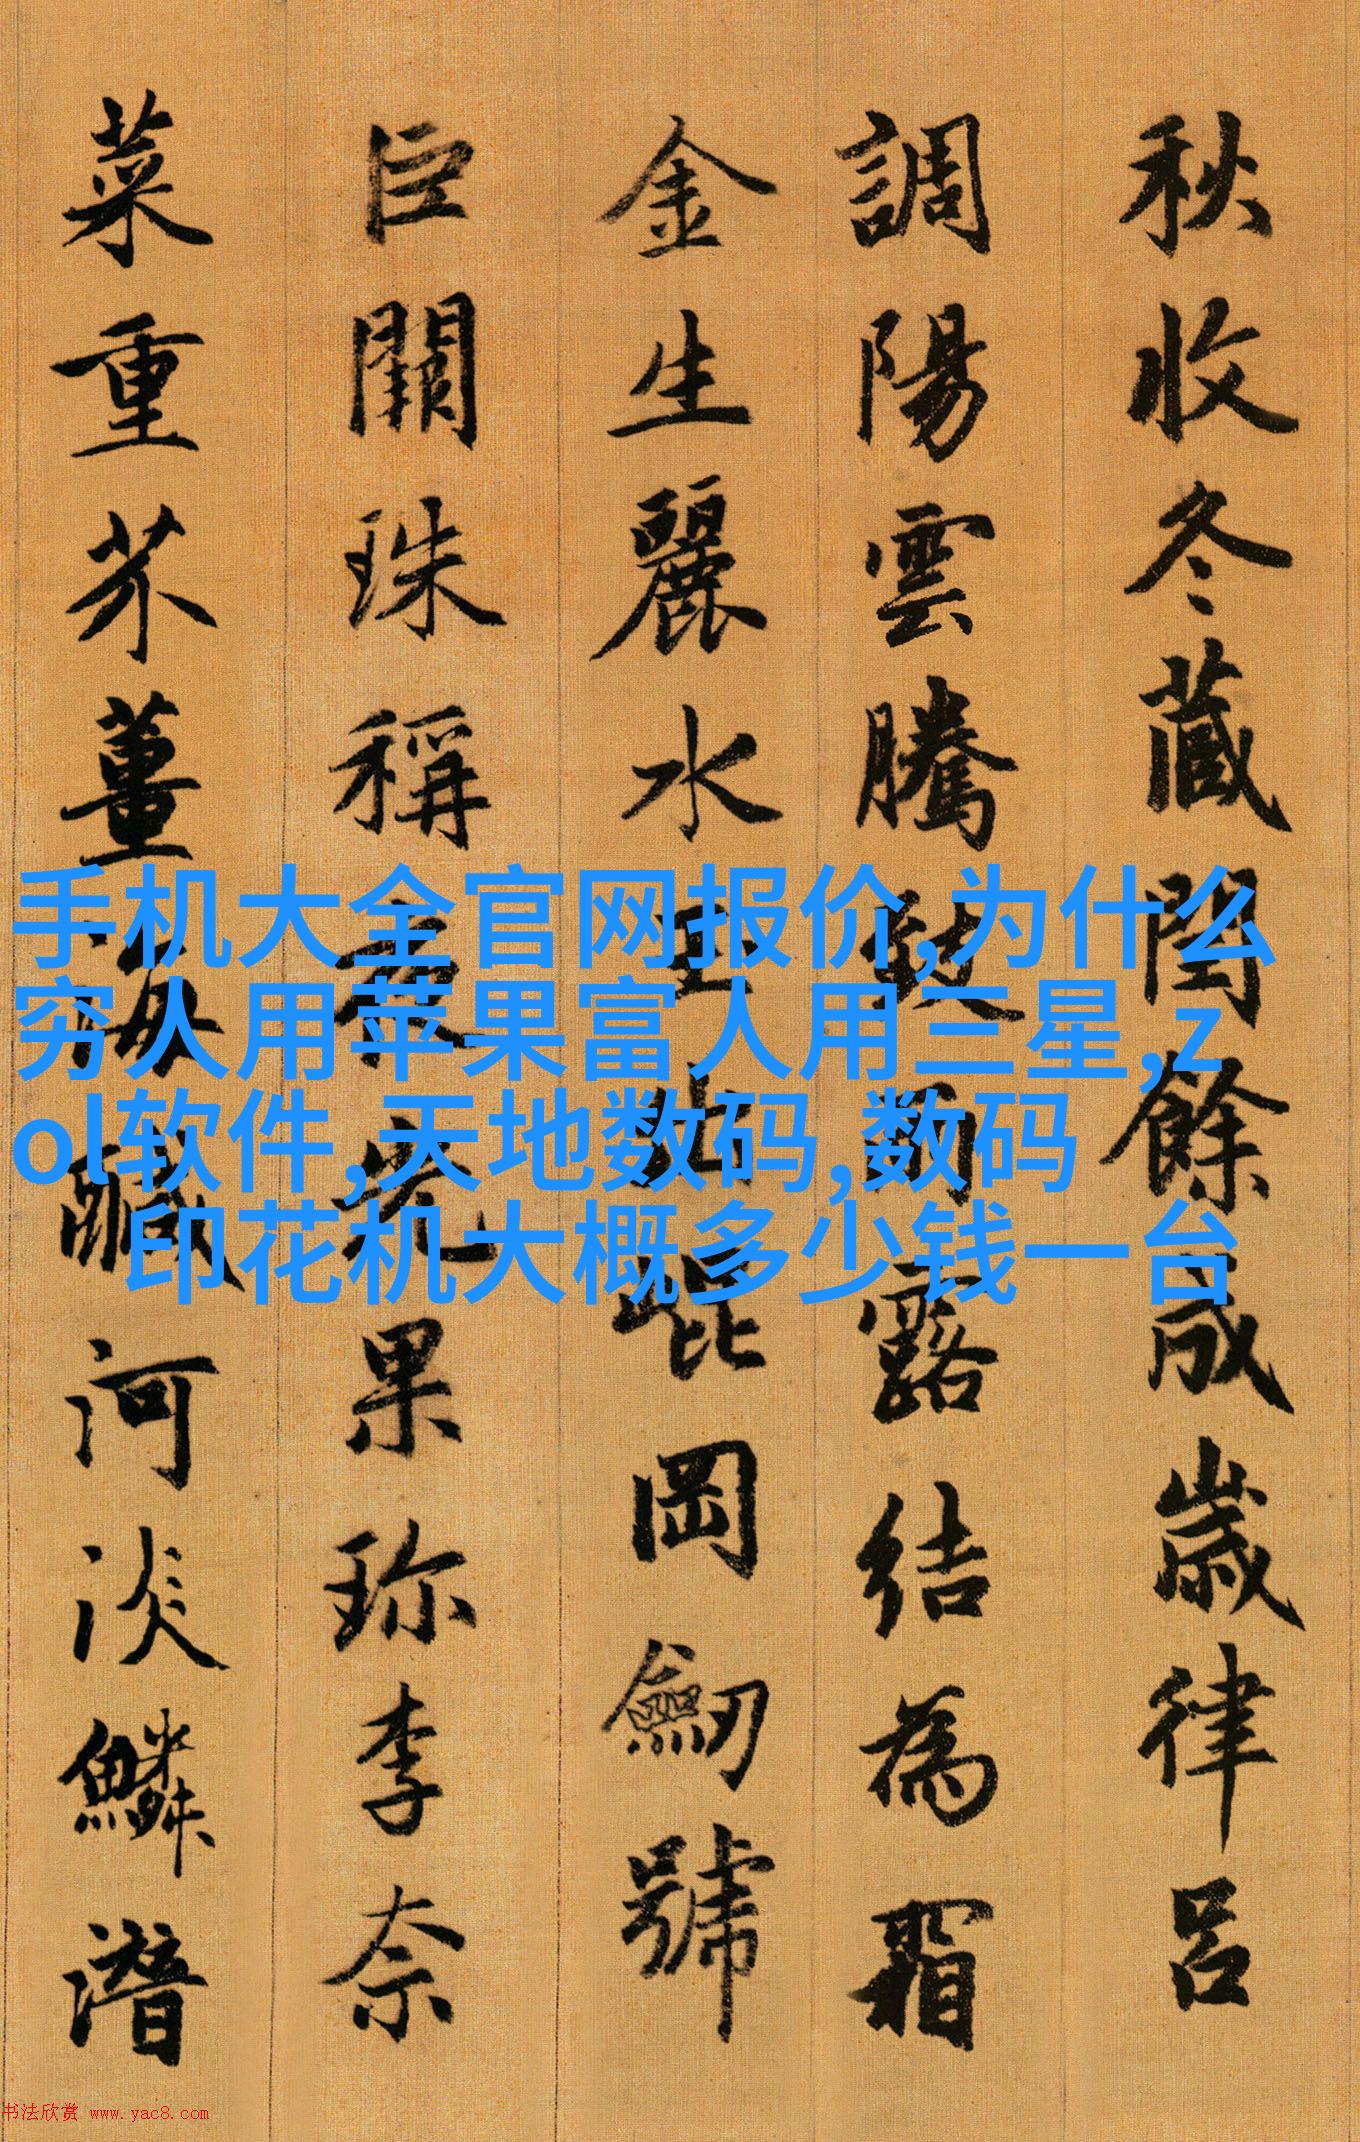 秋收冬藏閏餘成歲律呂
調陽雲騰致雨露結為霜
金生麗水玉出崐岡劒號
巨闕珠稱夜光果珎李奈
菜重芥薑海鹹河淡鱗潛
手机大全官网报价,为什么
穷人用苹果富人用三星,z
ol软件,天地数码,数码
印花机大概多少钱一台
书法欣赏 www.yac8.com